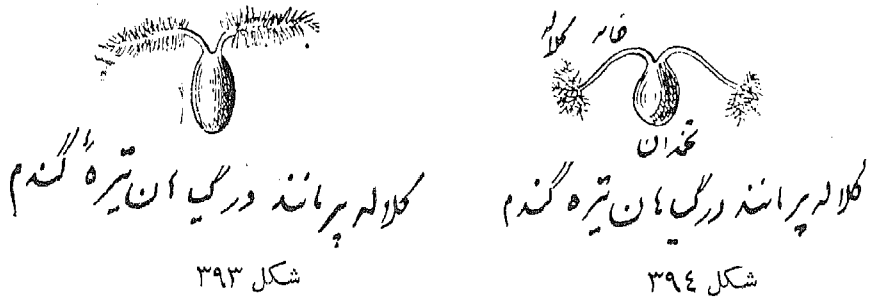 کلاله
خامه
تخمدان
کلاله پر مانند در گیاهان تیرهٔ گندم
شکل ۳۹۳
کلاله پر مانند در گیاهان تیره گندم
شکل ۳۹٤